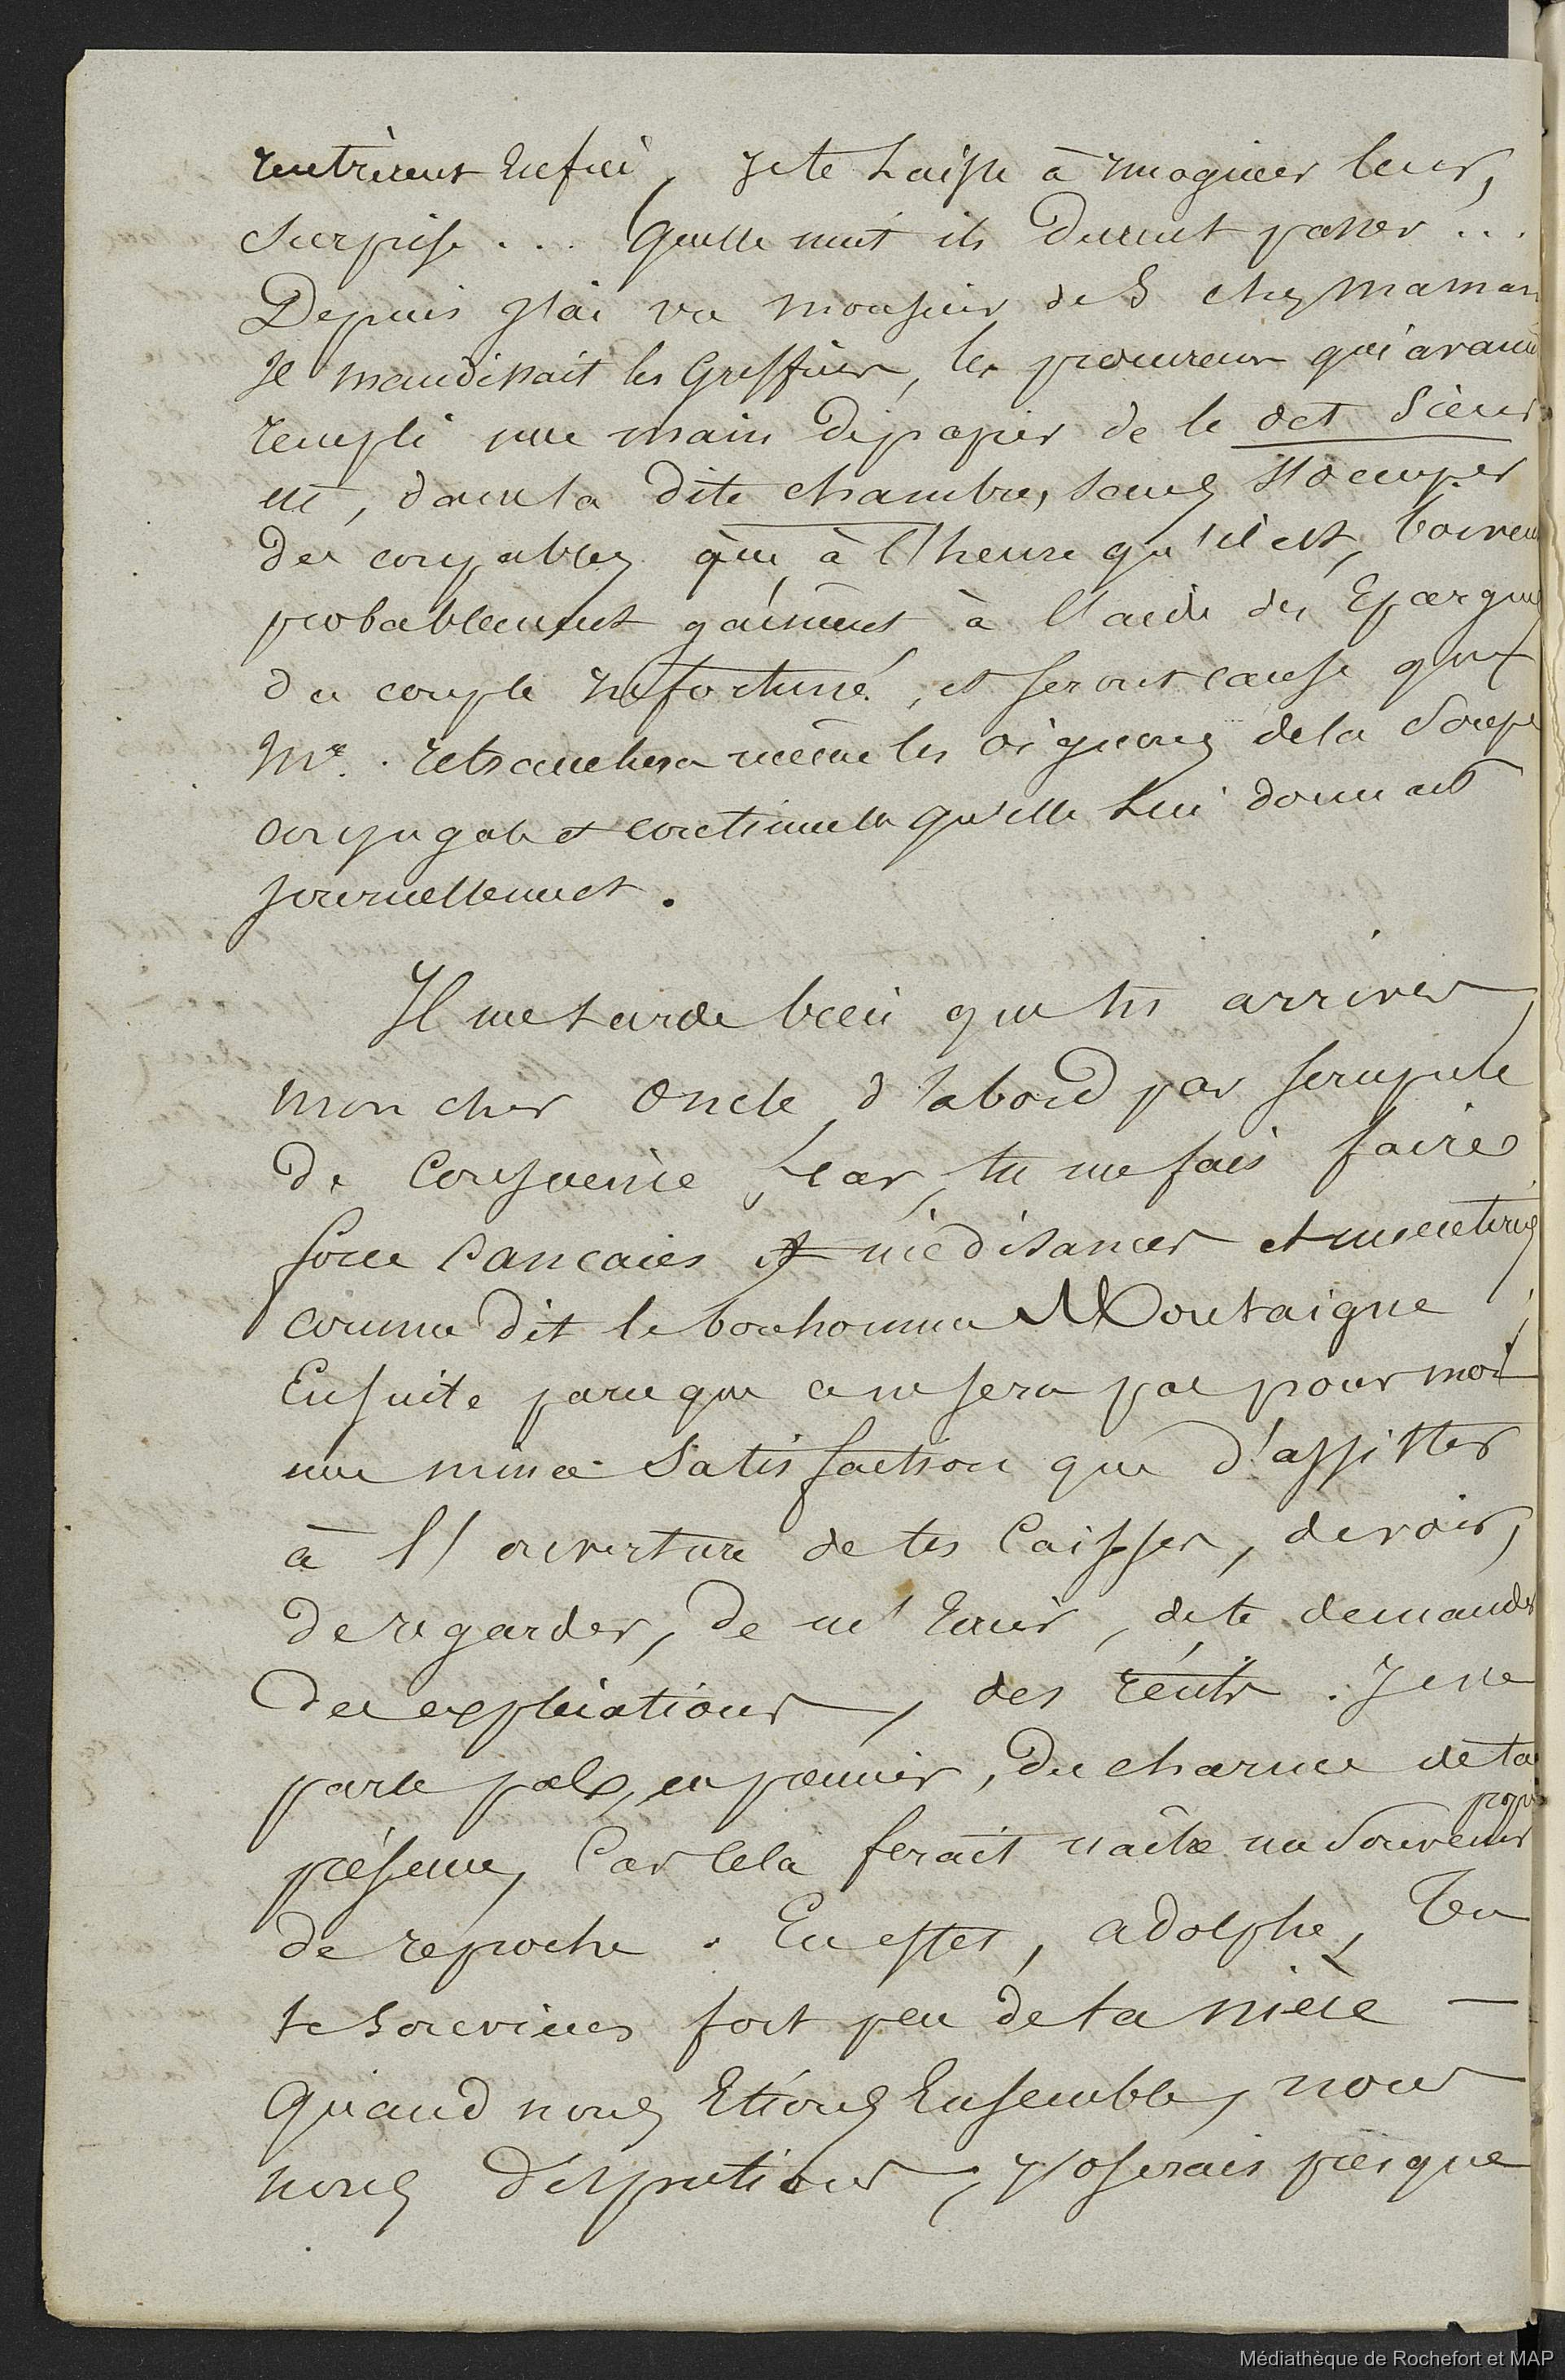 rentrèrent Enfin, Je te Laisse à Imaginer leur,
Surprise ... Quelle nuit ils Durent passer ...
Depuis J'ai vu monsieur de S chez maman
Il maudissait les Greffiers, les procureurs qui avaient
rempli une main de papier de le det Sieur
et, dans la dite chambre, sans s'occuper
des coupables qui, à l'heure qu'il est, boivent
probablement gaiment à l'aide des Epargnes
du couple Infortuné, et seront cause que
Me. retranchera même les oignons de la Soupe
conjugale & continuelle qu'elle Lui donnait
journellement.
Il me tarde bien que tu arrives,
mon cher Oncle, d'abord par scrupule
de Conscience, Car, tu me fais faire
force Cancaies et médisances et menteries
comme dit le bonhomme Montaigne ;
Ensuite parceque ce ne sera pas pour moi
une mince Satisfaction que d'assister
à l'ouverture de tes Caisses, de voir,
de regarder, de m' , de te demander
des explications, des récits. Je ne
parle pas, en premier, Du charme de ta
propre
présence, Car Cela ferait naître un Souvenir
de reproche. En effet, adolphe, Tu
te Souviens fort peu de ta nièce —
Quand nous Etions Ensemble, nous
nous disputions, J'oserais presque
Médiathèque de Rochefort et MAP